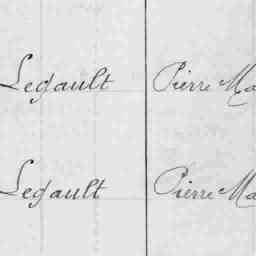 Legault Pierre Ma
Legault Pierre Ma